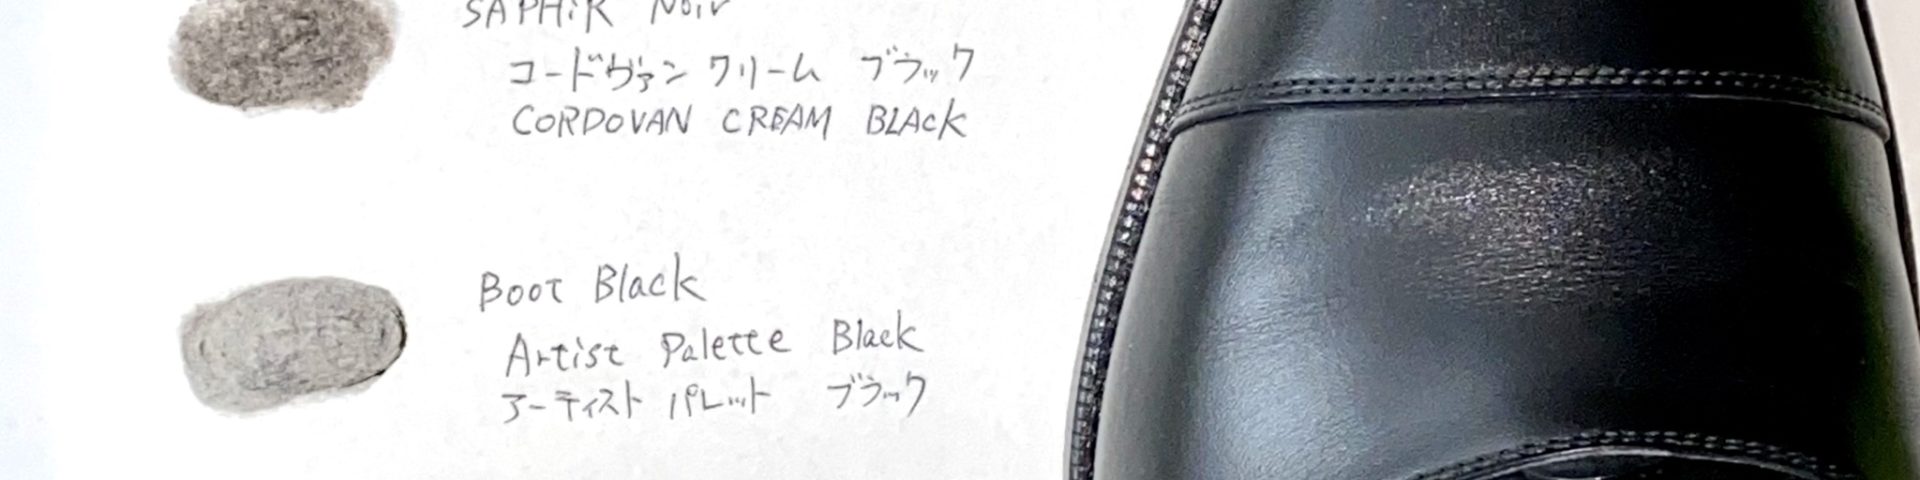 SAPHiR Noir
コードヴァン クリーム ブラック
CORDOVAN CREAM BLACK
Boot Black
Artist Palette Black
アーティスト パレット ブラック